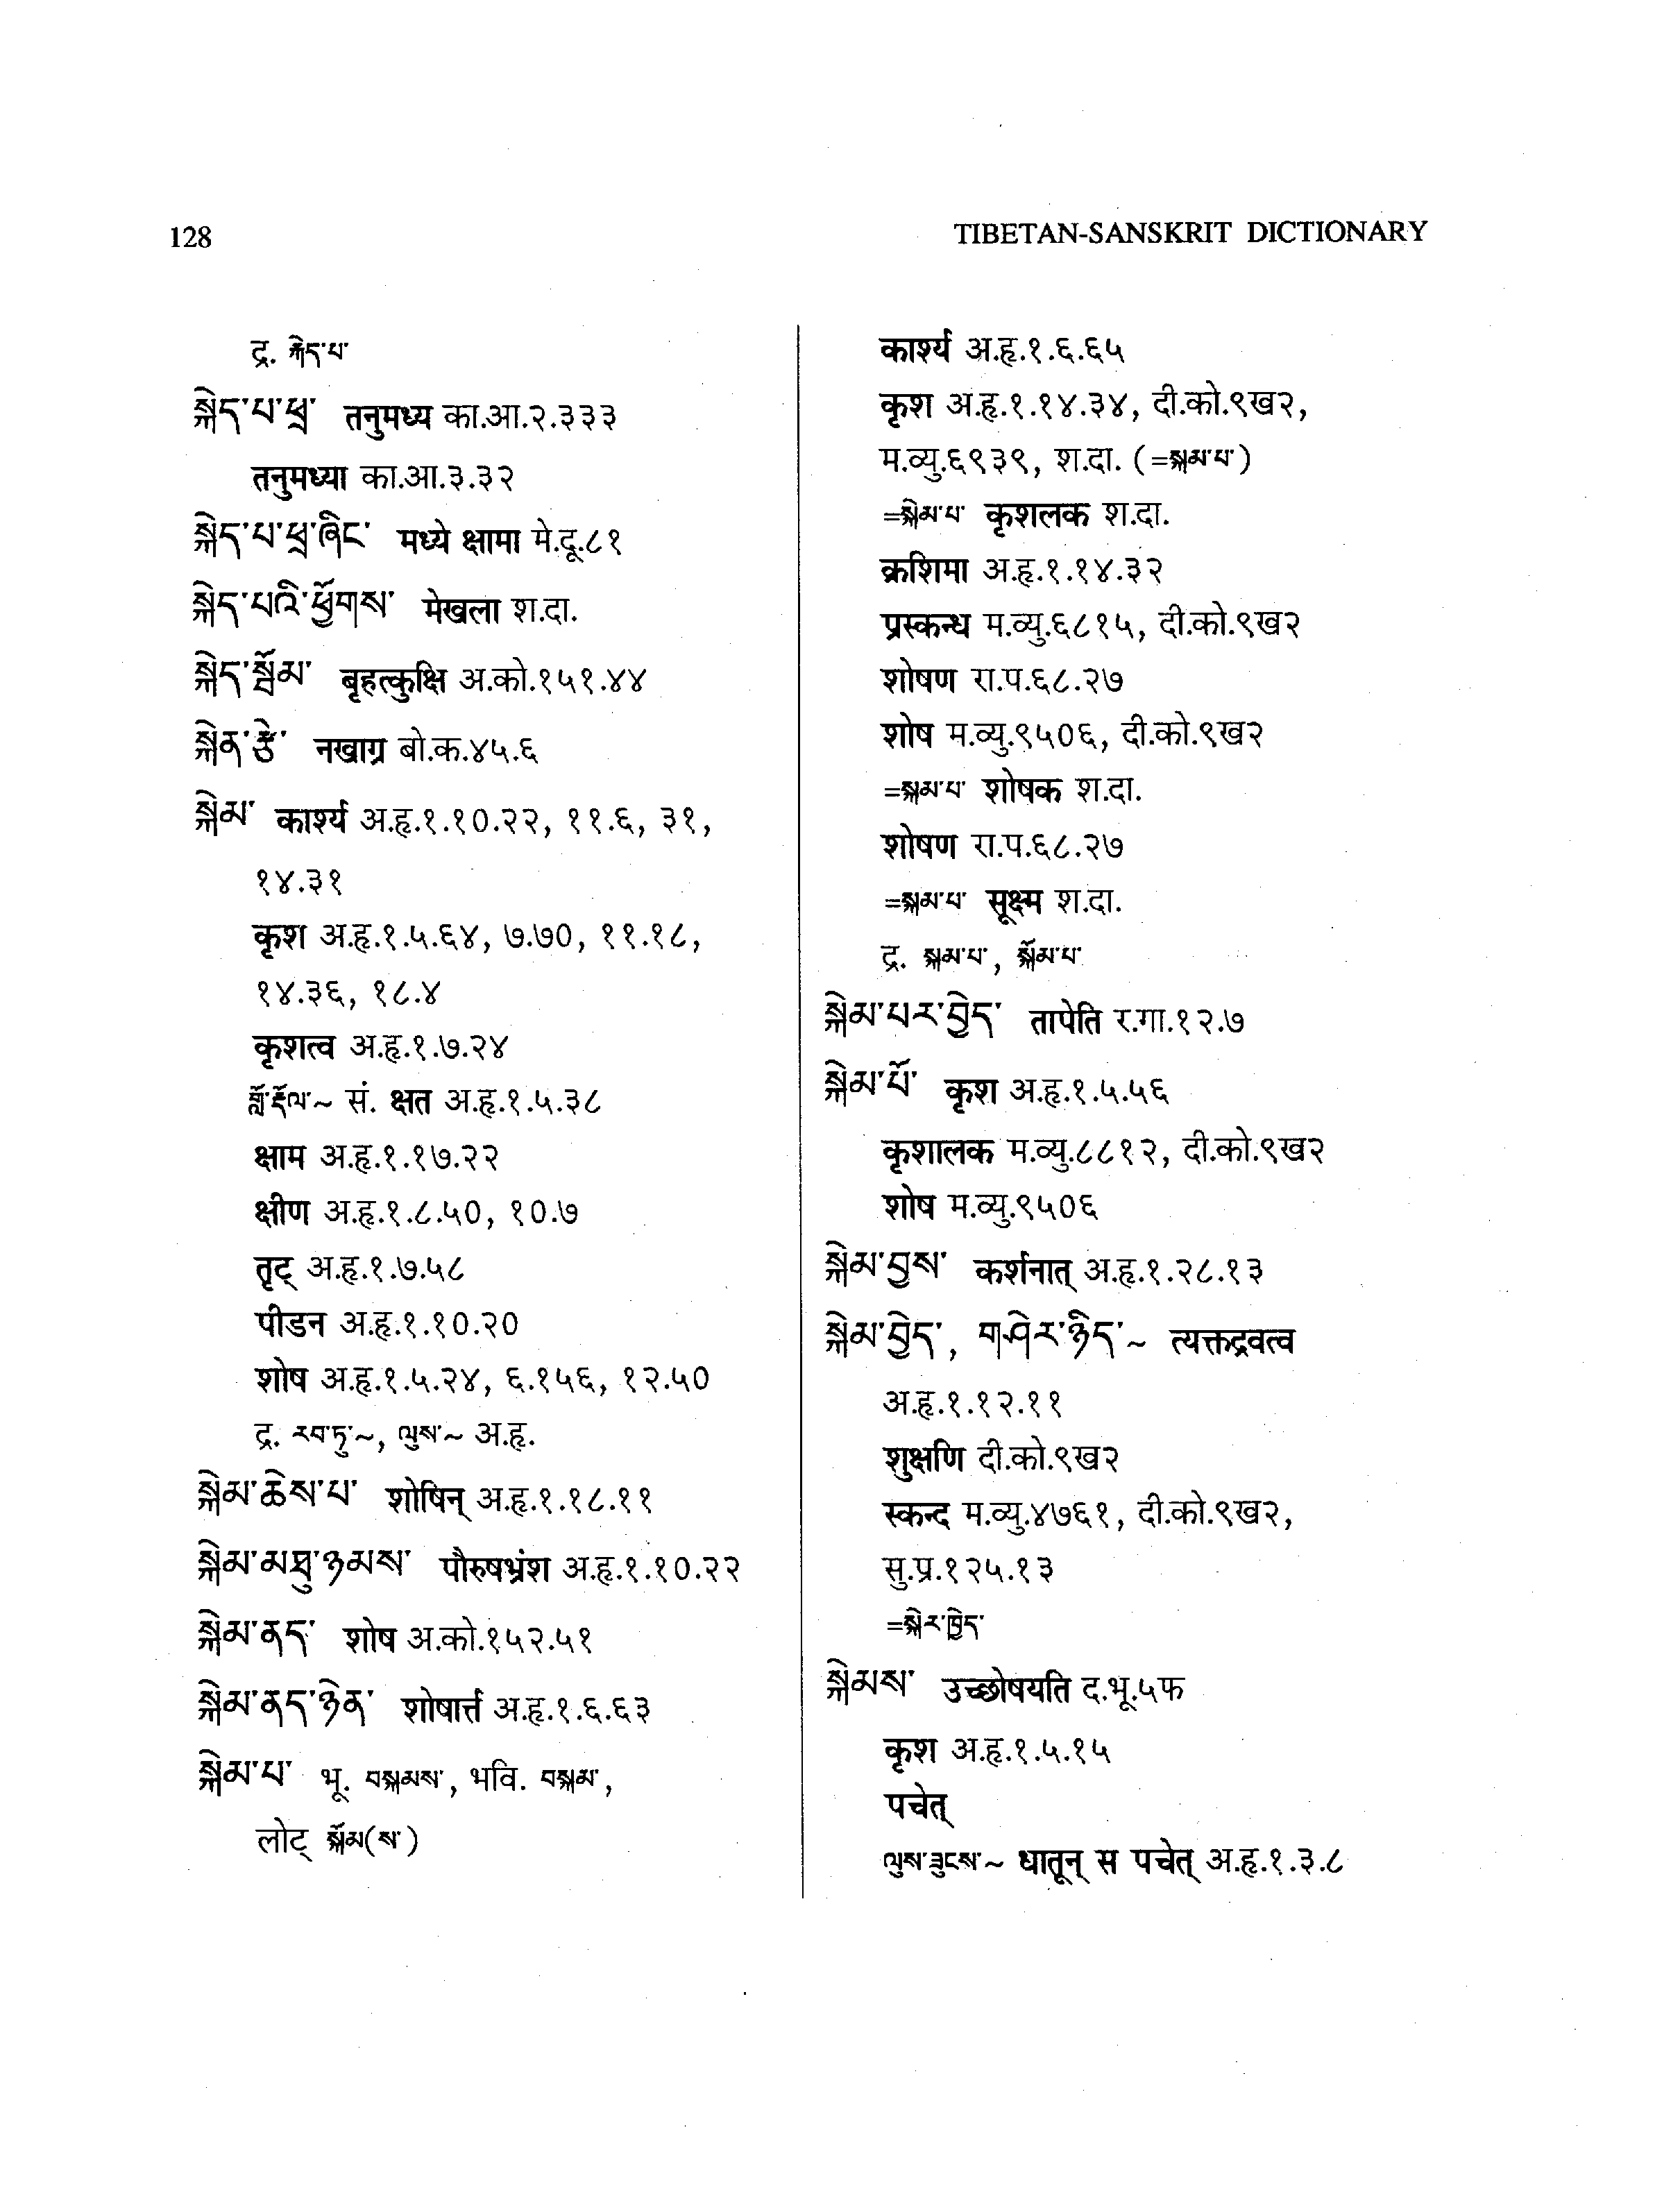 128
TIBETAN-SANSKRIT DICTIONARY
द्र. རྐེད་པ་
སྐེད་པ་ཕྲ་ तनुमध्य का.आ.२.३३३
तनुमध्या का.आ.३.३२
སྐེད་པ་ཕྲ་ཞིང་ मध्ये क्षामा मे.दू.८१
སྐེད་པའི་ཕྱོགས་ मेखला श.दा.
སྐེད་སྦོམ་ बृहत्कुक्षि अ.को.१५१.४४
སྐེན་རྩེ་ नखाग्र बो.क.४५.६
སྐེམ་ कार्श्य अ.हृ.१.१०.२२, ११.६, ३१,
१४.३१
कृश अ.हृ.१.५.६४, ७.७०, ११.१८,
१४.३६, १८.४
कृशत्व अ.हृ.१.७.२४
གློ་རྡོལ་~ सं. क्षत अ.हृ.१.५.३८
क्षाम अ.हृ.१.१७.२२
क्षीण अ.हृ.१.८.५०, १०.७
तृट् अ.हृ.१.७.५८
पीडन अ.हृ.१.१०.२०
शोष अ.हृ.१.५.२४, ६.१५६, १२.५०
द्र. རབ་ཏུ་~, ལུས་~ अ.हृ.
སྐེམ་ཆེས་པ་ शोषिन् अ.हृ.१.१८.११
སྐེམ་མཐུ་ཉམས་ पौरुषभ्रंश अ.हृ.१.१०.२२
སྐེམ་ནད་ शोष अ.को.१५२.५१
སྐེམ་ནད་ཉེན་ शोषार्त्त अ.हृ.१.६.६३
སྐེམ་པ་ भू. བསྐམས་, भवि. བསྐམ་,
लोट् སྐོམ(ས་)
कार्श्य अ.हृ.१.६.६५
कृश अ.हृ.१.१४.३४, दी.को.९ख२,
म.व्यु.६९३९, श.दा. (=སྐམ་པ་)
=སྐེམ་པ་ कृशलक श.दा.
क्रशिमा अ.हृ.१.१४.३२
प्रस्कन्ध म.व्यु.६८१५, दी.को.९ख२
शोषण रा.प.६८.२७
शोष म.व्यु.९५०६, दी.को.९ख२
=སྐམ་པ་ शोषक श.दा.
शोषण रा.प.६८.२७
=སྐམ་པ་ सूक्ष्म श.दा.
द्र. སྐམ་པ་, སྐོམ་པ་
སྐེམ་པར་བྱེད་ तापेति र.गा.१२.७
སྐེམ་པོ་ कृश अ.हृ.१.५.५६
कृशालक म.व्यु.८८१२, दी.को.९ख२
शोष म.व्यु.९५०६
སྐེམ་བྱས་ कर्शनात् अ.हृ.१.२८.१३
སྐེམ་བྱེད་, གཤེར་ཉིད་~ त्यक्तद्रवत्व
अ.हृ.१.१२.११
शुक्षणि दी.को.९ख२
स्कन्द म.व्यु.४७६१, दी.को.९ख२,
सु.प्र.१२५.१३
=སྐེར་ཁྱེད་
སྐེམས་ उच्छोषयति द.भू.५फ
कृश अ.हृ.१.५.१५
पचेत्
ལུས་ཟུངས་~ धातून् स पचेत् अ.हृ.१.३.८